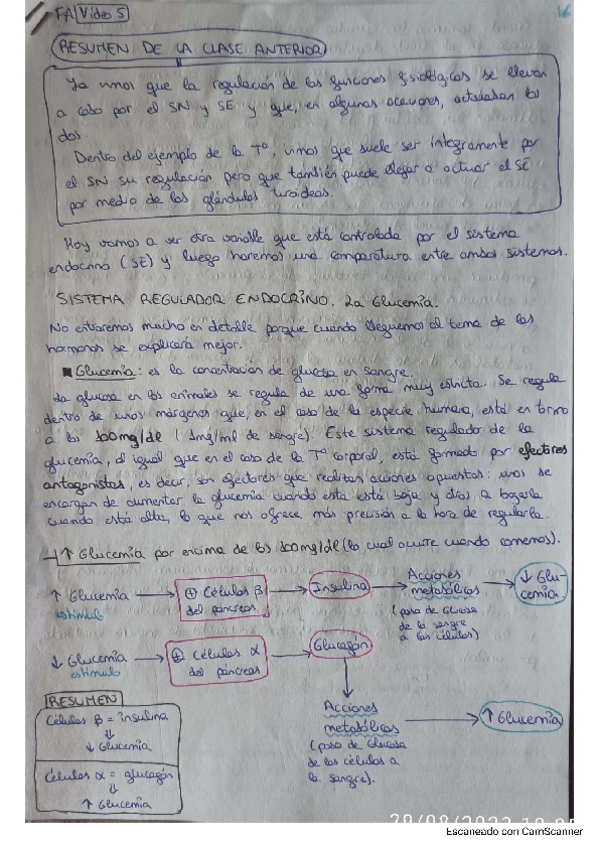 FA Vídeo 5
16
RESUMEN DE LA CLASE ANTERIOR
Ya vimos que la regulación de las funciones fisiológicas se llevan
a cabo por el SN y SE y que, en algunas ocasiones, actuaban los
dos.
Dentro del ejemplo de la Tº, vimos que suele ser íntegramente por
el SN su regulación pero que también puede llegar a actuar el SE
por medio de las glándulas tiroideas.
Hoy vamos a ver otra variable que está controlada por el sistema
endocrino (SE) y luego haremos una comparativa entre ambos sistemas.
SISTEMA REGULADOR ENDOCRINO. La Glucemia.
No entraremos mucho en detalle porque cuando lleguemos al tema de las
hormonas se explicará mejor.
Glucemia: es la concentración de glucosa en sangre.
La glucosa en los animales se regula de una forma muy estricta. Se regula
dentro de unos márgenes que, en el caso de la especie humana, está en torno
a los 100mg/dl (1mg/ml de sangre). Este sistema regulador de la
glucemia, al igual que en el caso de la Tº corporal, está formado por efectores
antagonistas, es decir, son efectores que realizan acciones opuestas: unos se
encargan de aumentar la glucemia cuando esta está baja y otros a bajarla
cuando está alta, lo que nos ofrece más precisión a la hora de regularla.
→ ↑ Glucemia por encima de los 100mg/dl (lo cual ocurre cuando comemos).
↑ Glucemia → ⊕ Células β → Insulina → Acciones → ↓ Glu-
estímulo del páncreas metabólicas cemia
(paso de glucosa
de la sangre
a las células)
↓ Glucemia → ⊕ Células α → Glucagón
estímulo del páncreas
↓
Acciones → ↑ Glucemia
metabólicas
(paso de glucosa
de las células a
la sangre).
RESUMEN
Células β = insulina
⇓
↓ Glucemia
Células α = glucagón
⇓
↑ Glucemia
Escaneado con CamScanner